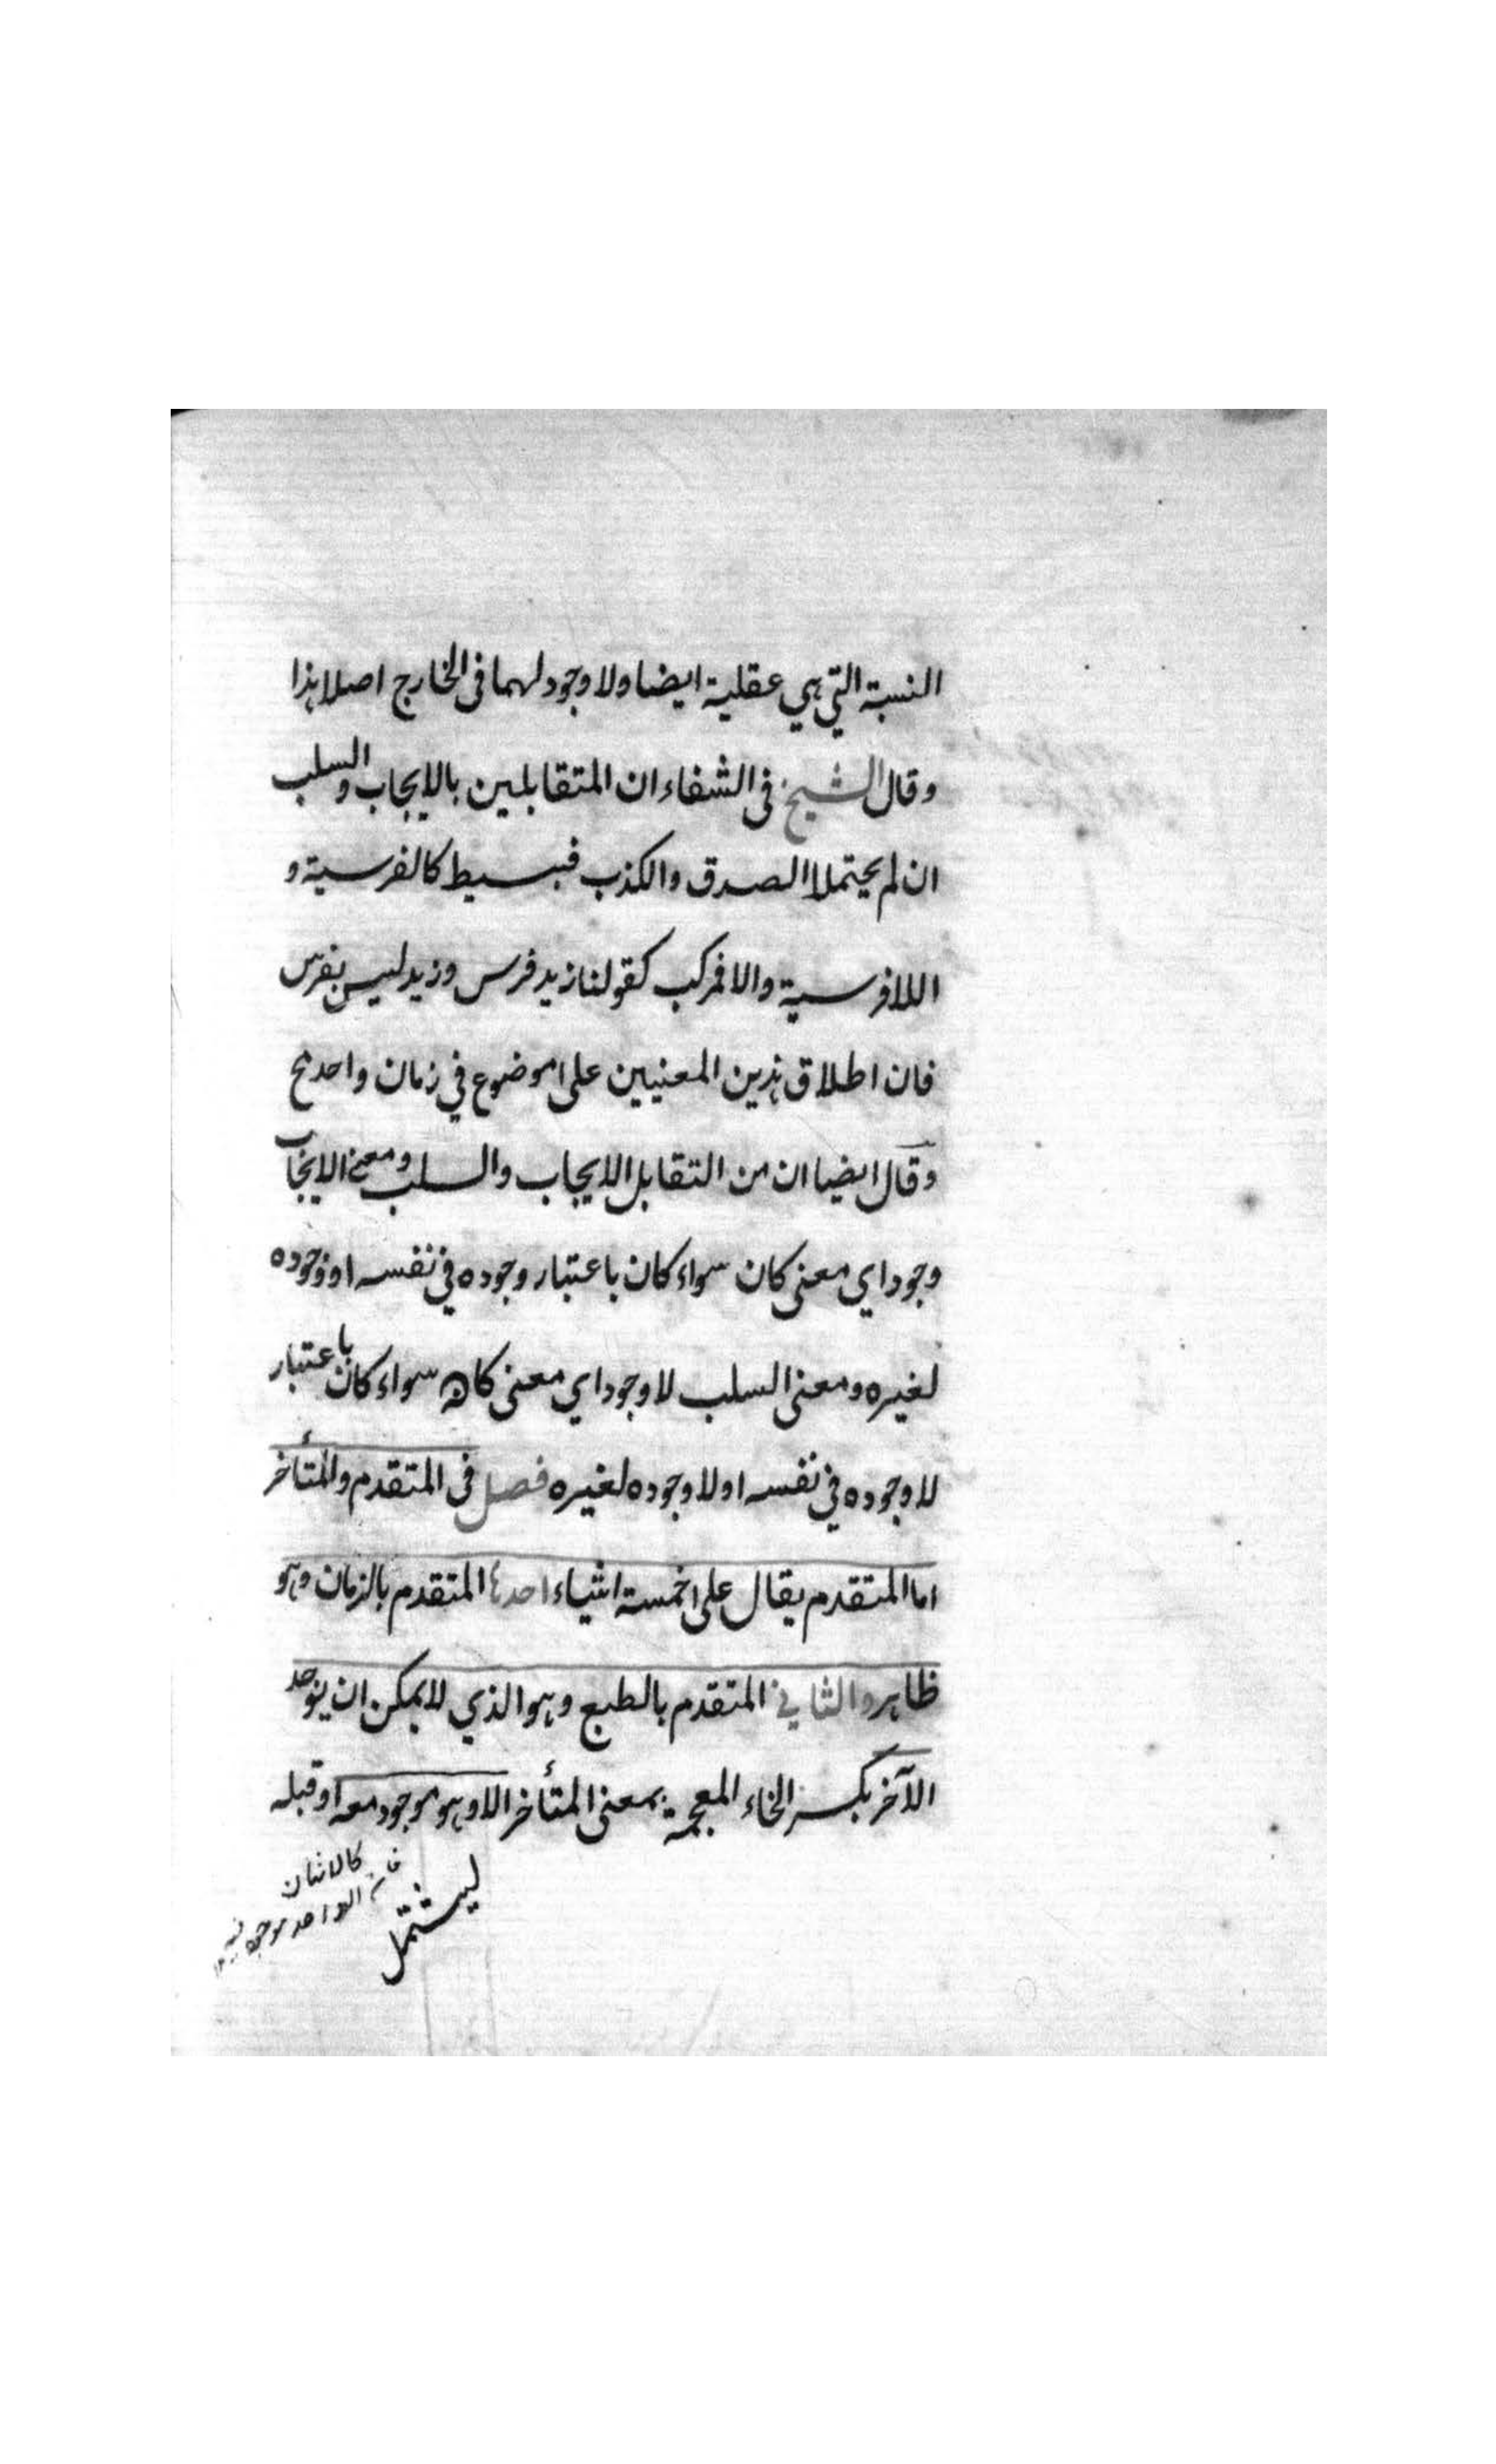 النسبة التي هي عقلية ايضا ولا وجود لهما في الخارج اصلا هذا
وقال الشيخ في الشفاء ان المتقابلين بالايجاب والسلب
ان لم يحتملا الصدق والكذب فبسيط كالفرسية و
اللافرسية والا فمركب كقولنا زيد فرس وزيد ليس بفرس
فان اطلاق هذين المعنيين على موضوع في زمان واحد مح
وقال ايضا ان من التقابل الايجاب والسلب ومعنى الايجاب
وجود اي معنى كان سواء كان باعتبار وجوده في نفسه او وجوده
لغيره ومعنى السلب لا وجود اي معنى كان سواء كان باعتبار
لا وجوده في نفسه او لا وجوده لغيره فصل في المتقدم والمتأخر
اما المتقدم يقال على خمسة اشياء احدها المتقدم بالزمان وهو
ظاهر والثاني المتقدم بالطبع وهو الذي لا يمكن ان يوجد
الآخر بكسر الخاء المعجمة بمعنى المتأخر الا وهو موجود معه او قبله
كالاثنان
فان الواحد موجود فيه
ليشتمل